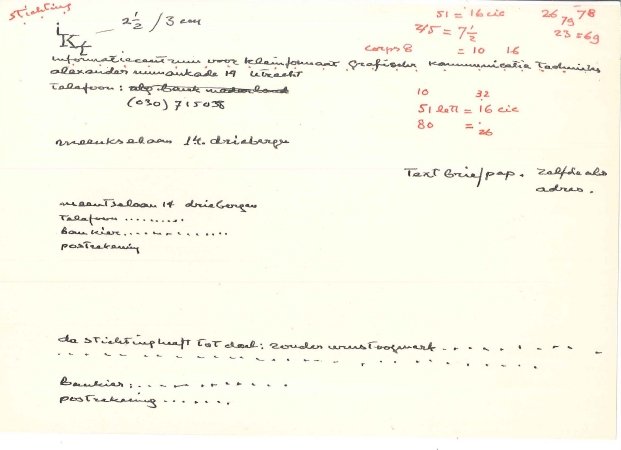 stichting
iKt — 2½ / 3 cm
51 = 16 cic
26 78
79
245 = 7½
23 = 69
corps 8 = 10 16
informatiecentrum voor kleinformaat grafische kommunicatie Technieken
alexander numankade 19 utrecht
Telefoon : alg. bank nederland
(030) 715038
10 32
51 lett = 16 cic
80 = 26
14. driebergen
Text brief/pap. Zelfde als
adres.
meentselaan 14 driebergen
Telefoon ..........
Bankier ................
postrekening
da stichting heeft tot doel: zonder winstoogmerk ..........
..........
Bankier: ..........
postrekening .......